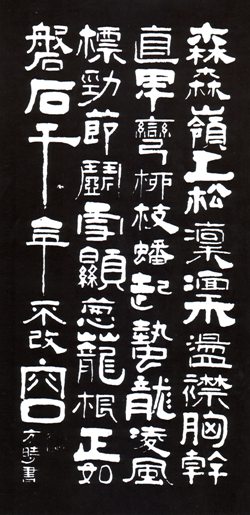 森森嶺上松凜凜盪襟胸幹
直卑彎柳枝蟠起蟄龍凌風
標勁節鬪雪顯蔥蘢根正如
磐石千年不改容
書